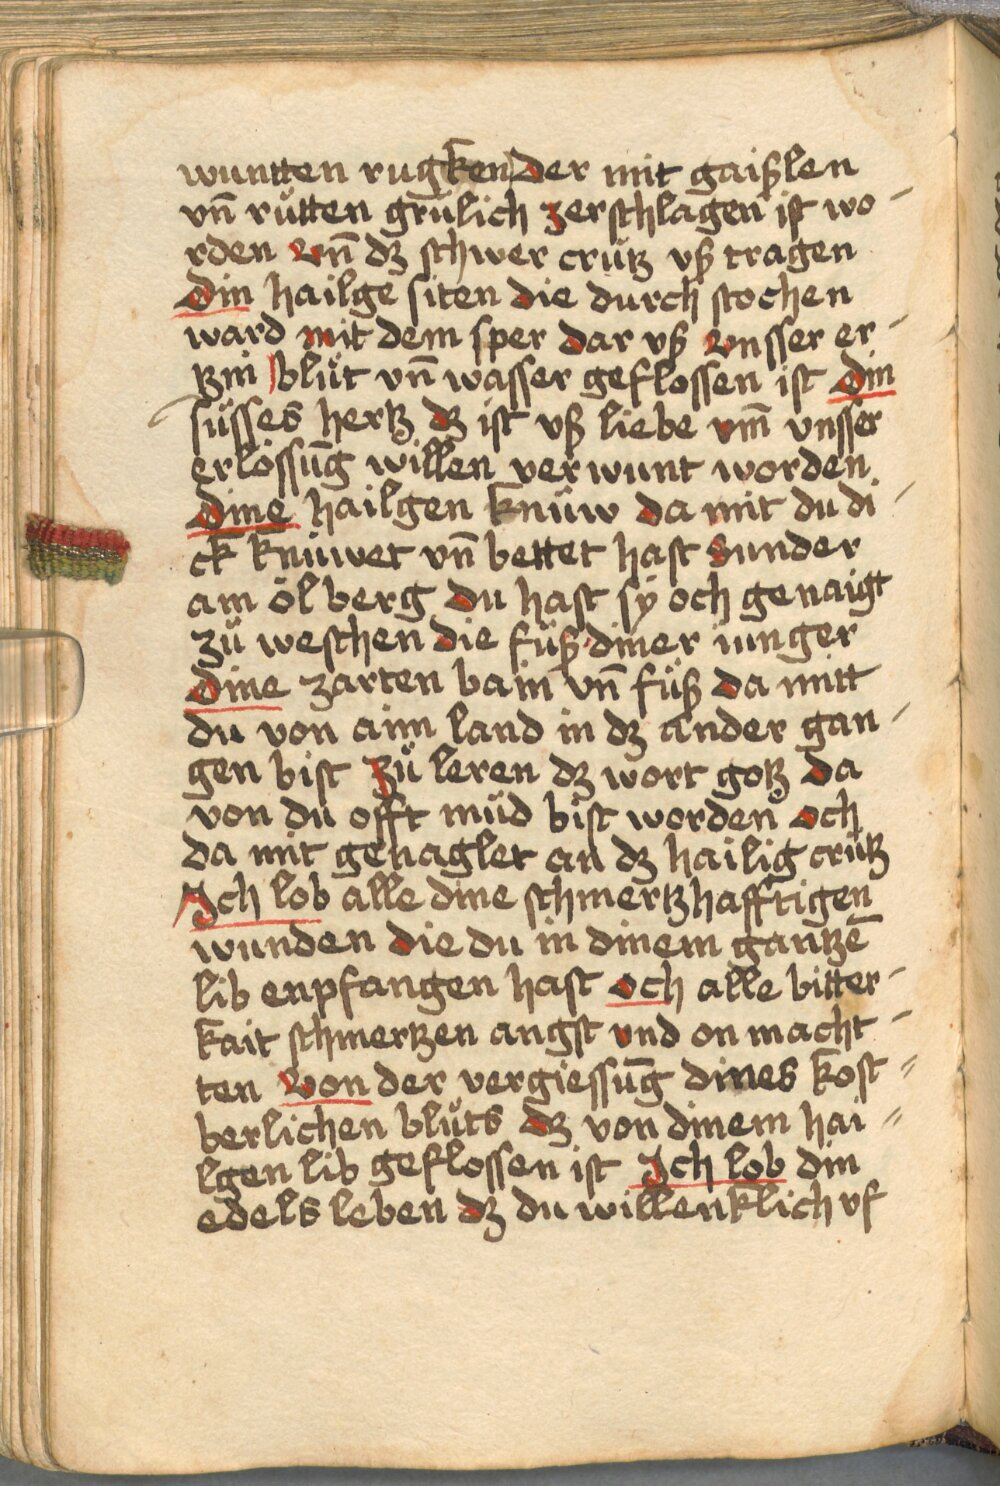 wuntten rugken der mit gaißlen
vn̄ růtten grulich zerschlagen ist wo-
rden vn̄ dz schwer crütz vß tragen
Din hailge siten die durch stochen
ward mit dem sper dar vß vnsser er-
tzin blůt vn̄ wasser geflossen ist Din
süsses hertz dz ist vß liebe vm̄ vnsser
erlössūg willen verwunt worden
Dine hailgen knüw da mit du di-
ck knüwet vn̄ bettet hast Sunder
am öl berg du hast sÿ och genaigt
zů weschen die füß diner iunger
Dine zarten bain vn̄ füß da mitt
du von aim land in dz ander gan-
gen bist Zů leren dz wort gotz da
von du offt müd bist worden och
da mit genaglet an dz hailig crütz
Ich lob alle dine schmertzhafftigen
wunden die du in dinem gantzē
lib enpfangen hast och alle bitter-
kait schmertzen angst vnd on macht-
ten Von der vergiessūg dines kost=
berlichen blůts dz von dinem hai=
lgen lib geflossen ist Ich lob din
edels leben dz du willenklich vf